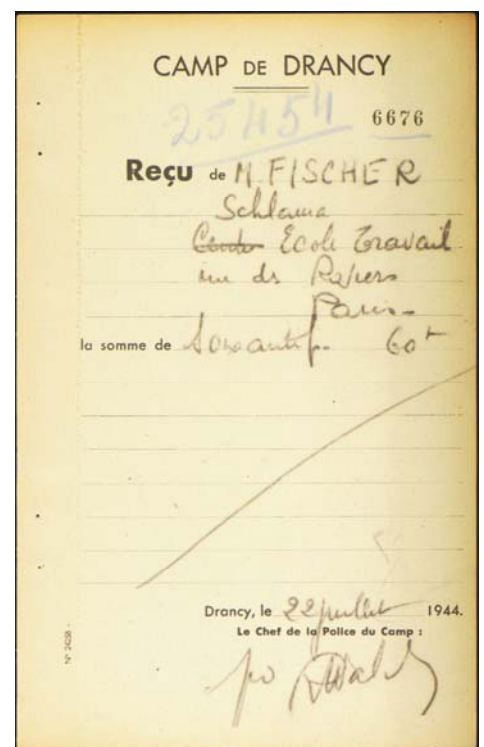 CAMP DE DRANCY
25454
6676
Reçu de M. FISCHER
Schlama
Ecole Travail
rue des Rosiers
Paris-
la somme de Soixante f. 60 f
Drancy, le 22 juillet 1944.
Le Chef de la Police du Camp :
po
N° 24258 -